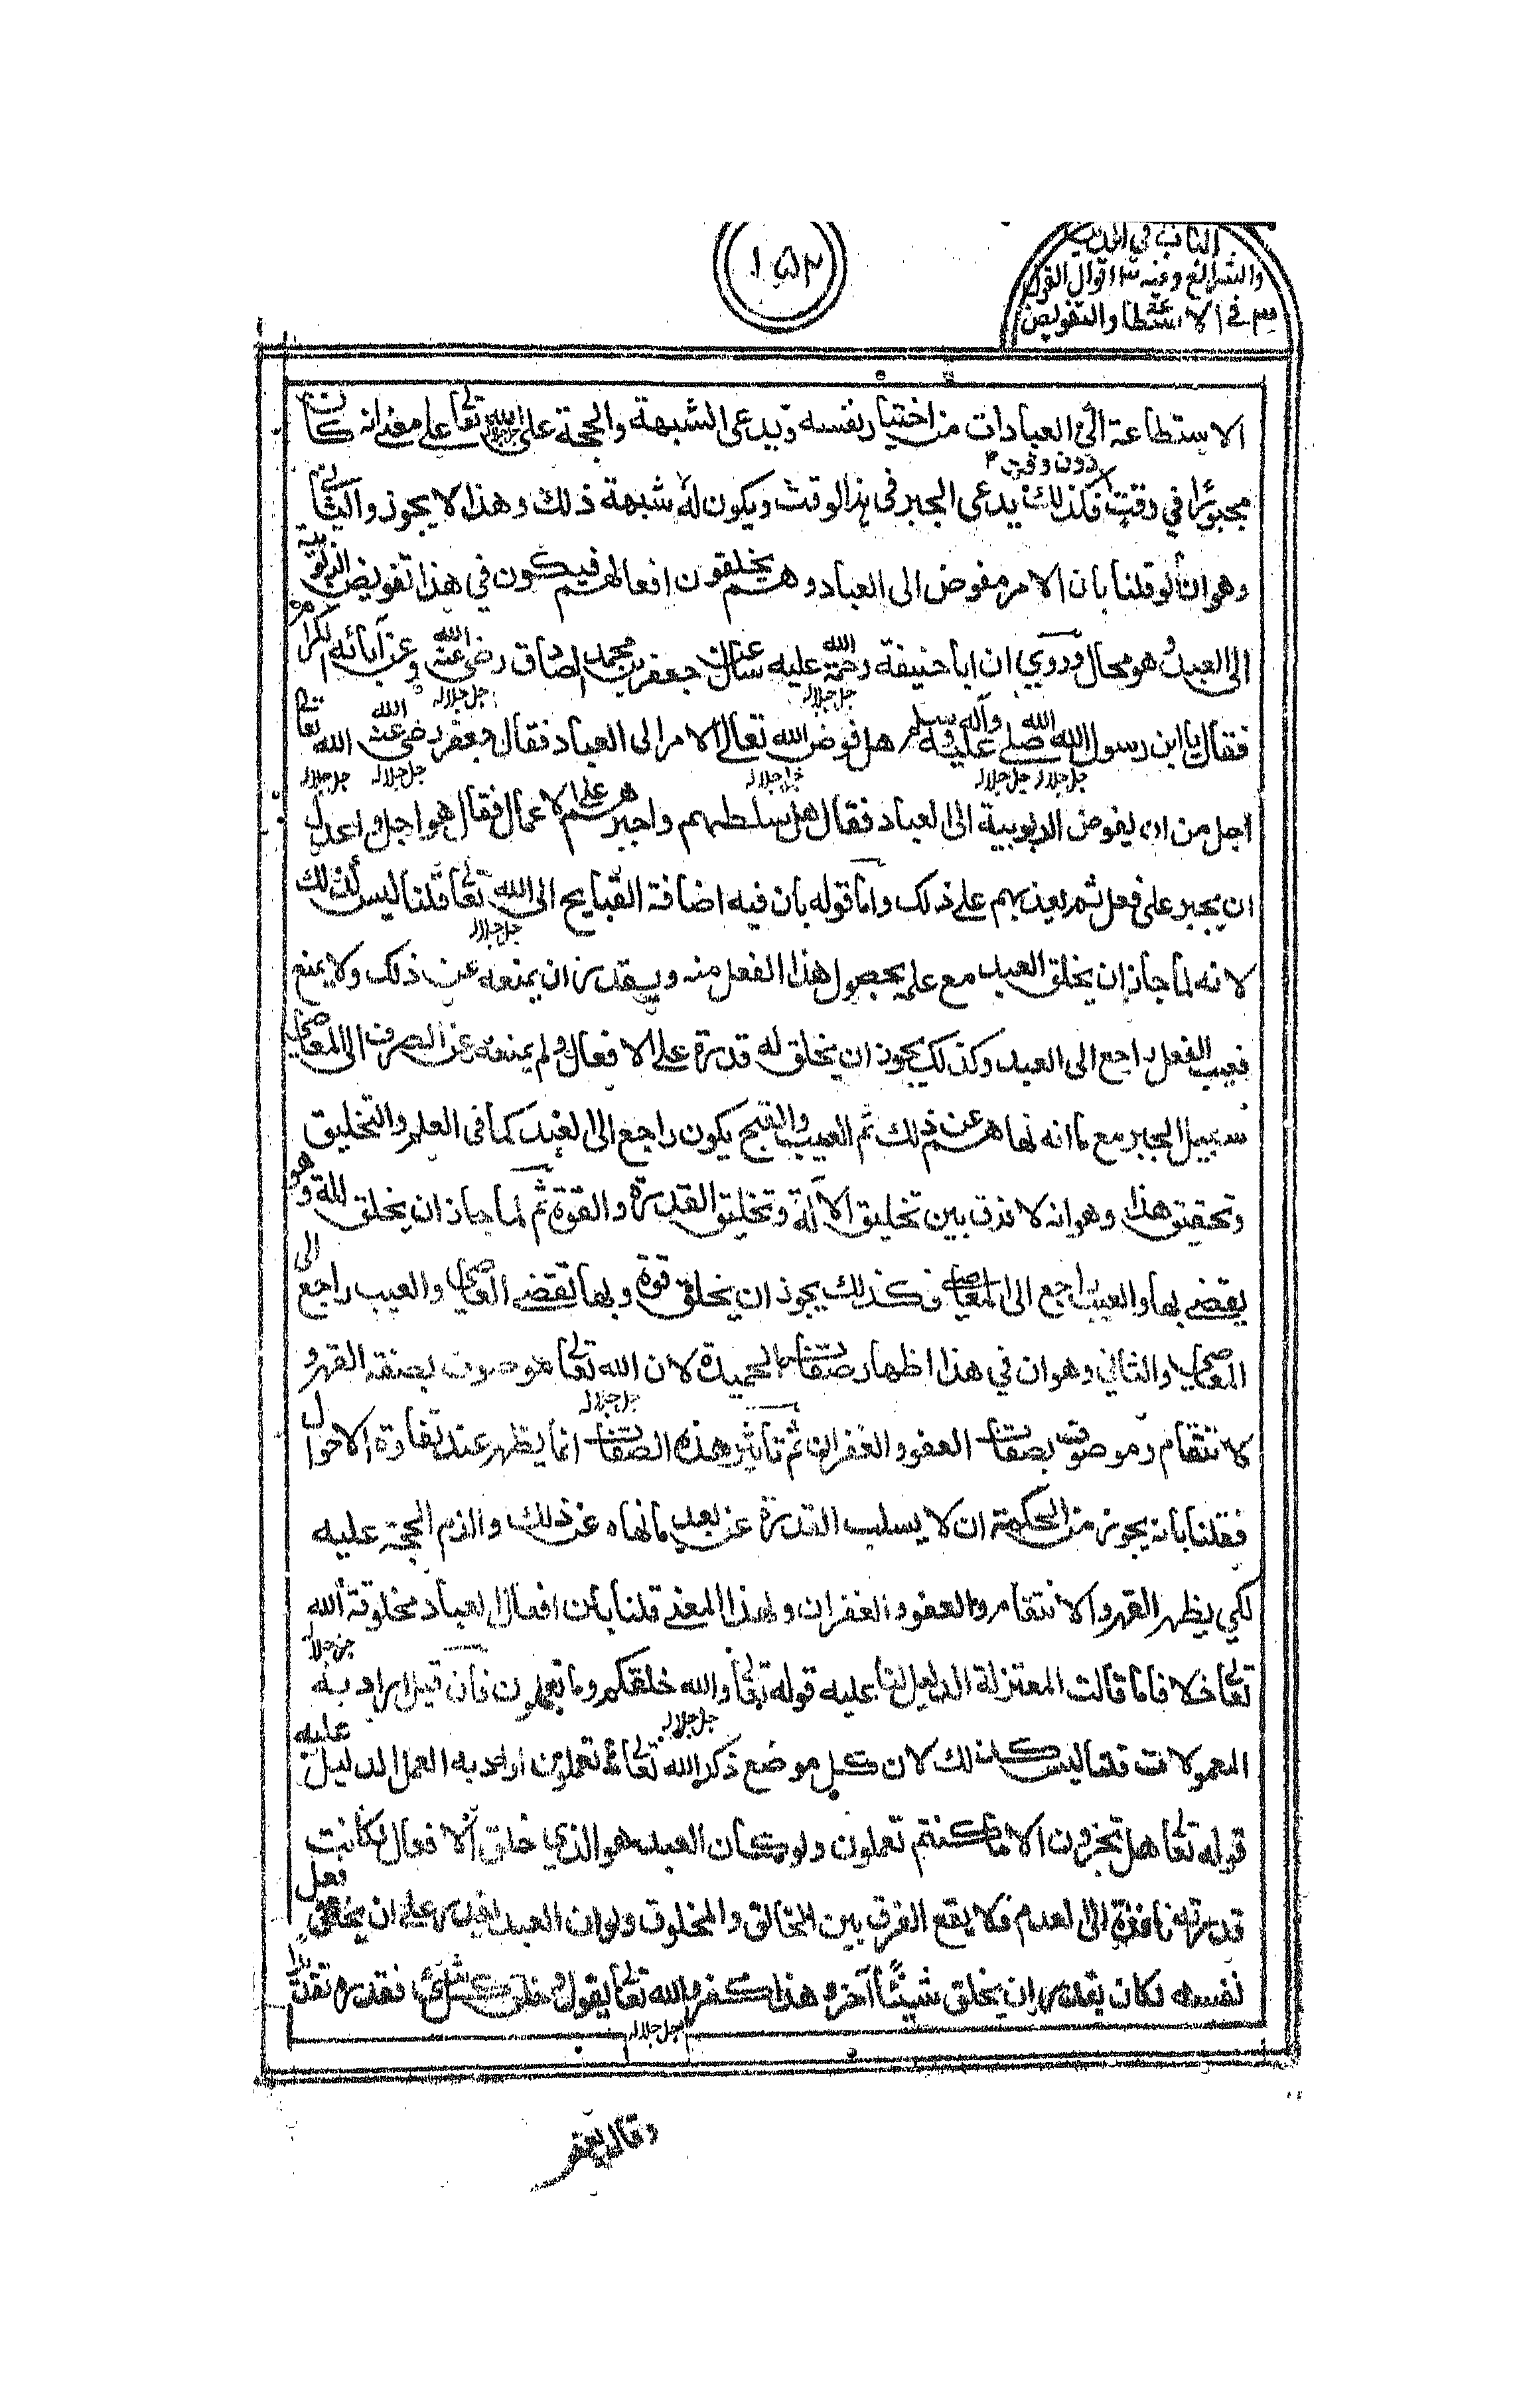 ١٥٣
والشرائع وفيه ٣ اقوال القول
٣ في الاستطاعة والتفويض
الاستطاعة الى العبادات من اختيار نفسه ويدعى الشبهة والحجة على الله جل جلاله تعالى على معنى انه كان
مجبورًا في وقت دون وقت فكذلك يدعى الجبر في هذا الوقت ويكون له شبهة ذلك وهذا لا يجوز والثاني
وهو ان لو قلنا بان الامر مفوض الى العباد وهم يخلقون افعالهم فيكون في هذا تفويض الربوبية
الى العبد وهو محال وروي ان ابا حنيفة رحمة الله عليه سأل عن جعفر بن محمد الصادق رضى الله عنه وعن آبائه الكرام
فقال يا ابن رسول الله صلى الله عليه وآله وسلم هل فوض الله تعالى الامر الى العباد فقال جعفر رضى الله عنه الله تعالى
اجل من ان يفوض الربوبية الى العباد فقال هل سلطهم واجبرهم على الاعمال فقال هو اجل واعدل
ان يجبر على فعل ثم يعذبهم على ذلك واما قوله بان فيه اضافة القبايح الى الله تعالى قلنا ليس كذلك
لانه لما جاز ان يخلق العبد مع علمه بحصول هذا الفعل منه ويقدر ان يمنعه عن ذلك ولا يمنع
فعيب الفعل راجع الى العبد وكذلك يجوز ان يخلق له قدرة على الافعال ولم يمنعه عن الصرف الى المعاصي
سبيل الجبر مع ما انه نهاهم عن ذلك ثم العيب والقبح يكون راجع الى العبد كما في العلم والتخليق
وتحقيق هذا وهو انه لا فرق بين تخليق الآلة وتخليق القدرة والقوة ثم لما جاز ان يخلق وهو
يقضى بها والعيب راجع الى المعاصي فكذلك يجوز ان يخلق قوة وبها تقضى المعاصي والعيب راجع الى
المعاصي والثاني وهو ان في هذا اظهار صفات الحميدة لان الله تعالى موصوف بصفة القهر و
الانتقام وموصوف بصفات العفو والغفران ثم تأثير هذه الصفات انما يظهر عند الاحوال
فقلنا بانه يجوز من الحكمة ان لا يسلب القدرة عن بعد ما نهاه عن ذلك والزم الحجة عليه
لكي يظهر القهر والانتقام والعفو والغفران ولهذا المعنى قلنا بان افعال العباد مخلوقة الله
تعالى خلافا ما قالت المعتزلة الدليل لنا عليه قوله تعالى والله خلقكم وما تعملون فان قيل اراد به
المعمولات قلنا ليس كذلك لان كل موضع ذكر الله تعالى تعملون اراد به العمل الدليل عليه
قوله تعالى هل تجزون الا ما كنتم تعملون ولو كان العبد هو الذي خلق الافعال لكانت
قدرته نافذة الى العدم فلا يقع الفرق بين الخالق والمخلوق ولو ان العبد يقدر على ان يخلق فعل
نفسه لكان يقدر ان يخلق شيئًا آخر وهذا كفر والله تعالى يقول خلق كل شئ فقدره تقديرا
جل جلاله